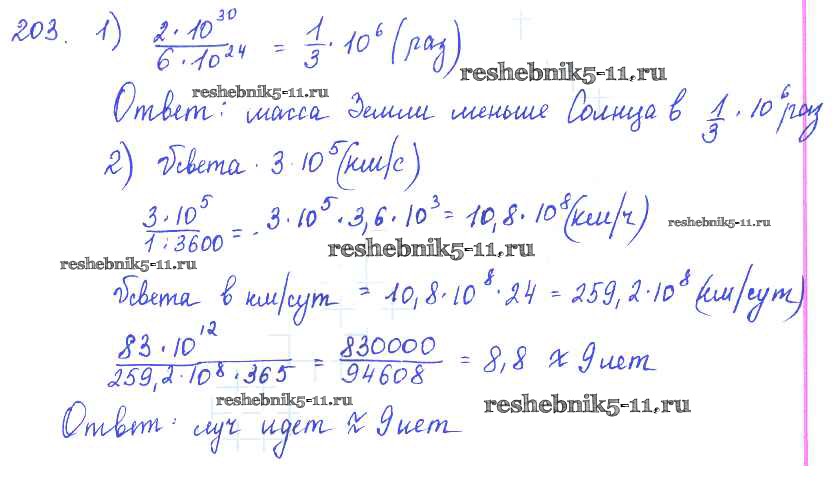 203. 1) 2·10³⁰ / 6·10²⁴ = 1/3 · 10⁶ (раз)
reshebnik5-11.ru
reshebnik5-11.ru
Ответ: масса Земли меньше Солнца в 1/3 · 10⁶ раз
2) Vсвета · 3·10⁵ (км/с)
3·10⁵ / 1:3600 = 3·10⁵·3,6·10³ = 10,8·10⁸ (км/ч)
reshebnik5-11.ru
reshebnik5-11.ru
reshebnik5-11.ru
Vсвета в км/сут = 10,8·10⁸·24 = 259,2·10⁸ (км/сут)
83·10¹² / 259,2·10⁸·365 = 830000 / 94608 = 8,8 ≈ 9 лет
reshebnik5-11.ru
reshebnik5-11.ru
Ответ: луч идет ≈ 9 лет